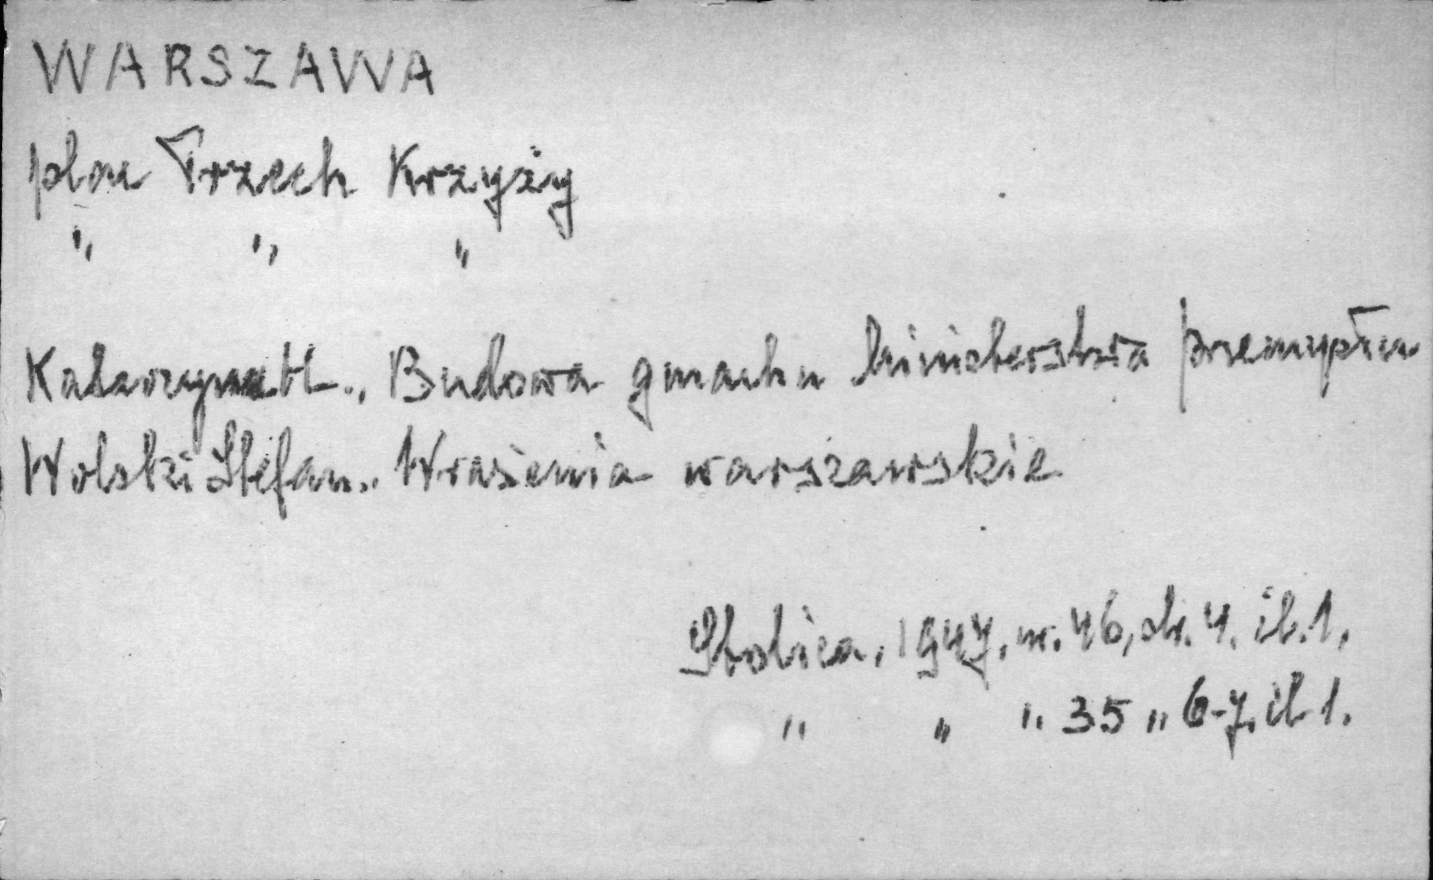 WARSZAWA
plac Trzech Krzyży
„ „ „
Budowa gmachu Ministerstwa przemysłu
Wolski Stefan., Wrażenia warszawskie
Stolica, 1947, nr. 46, str. 4. il. 1,
„ „ „ 35 „ 6-7. il 1.